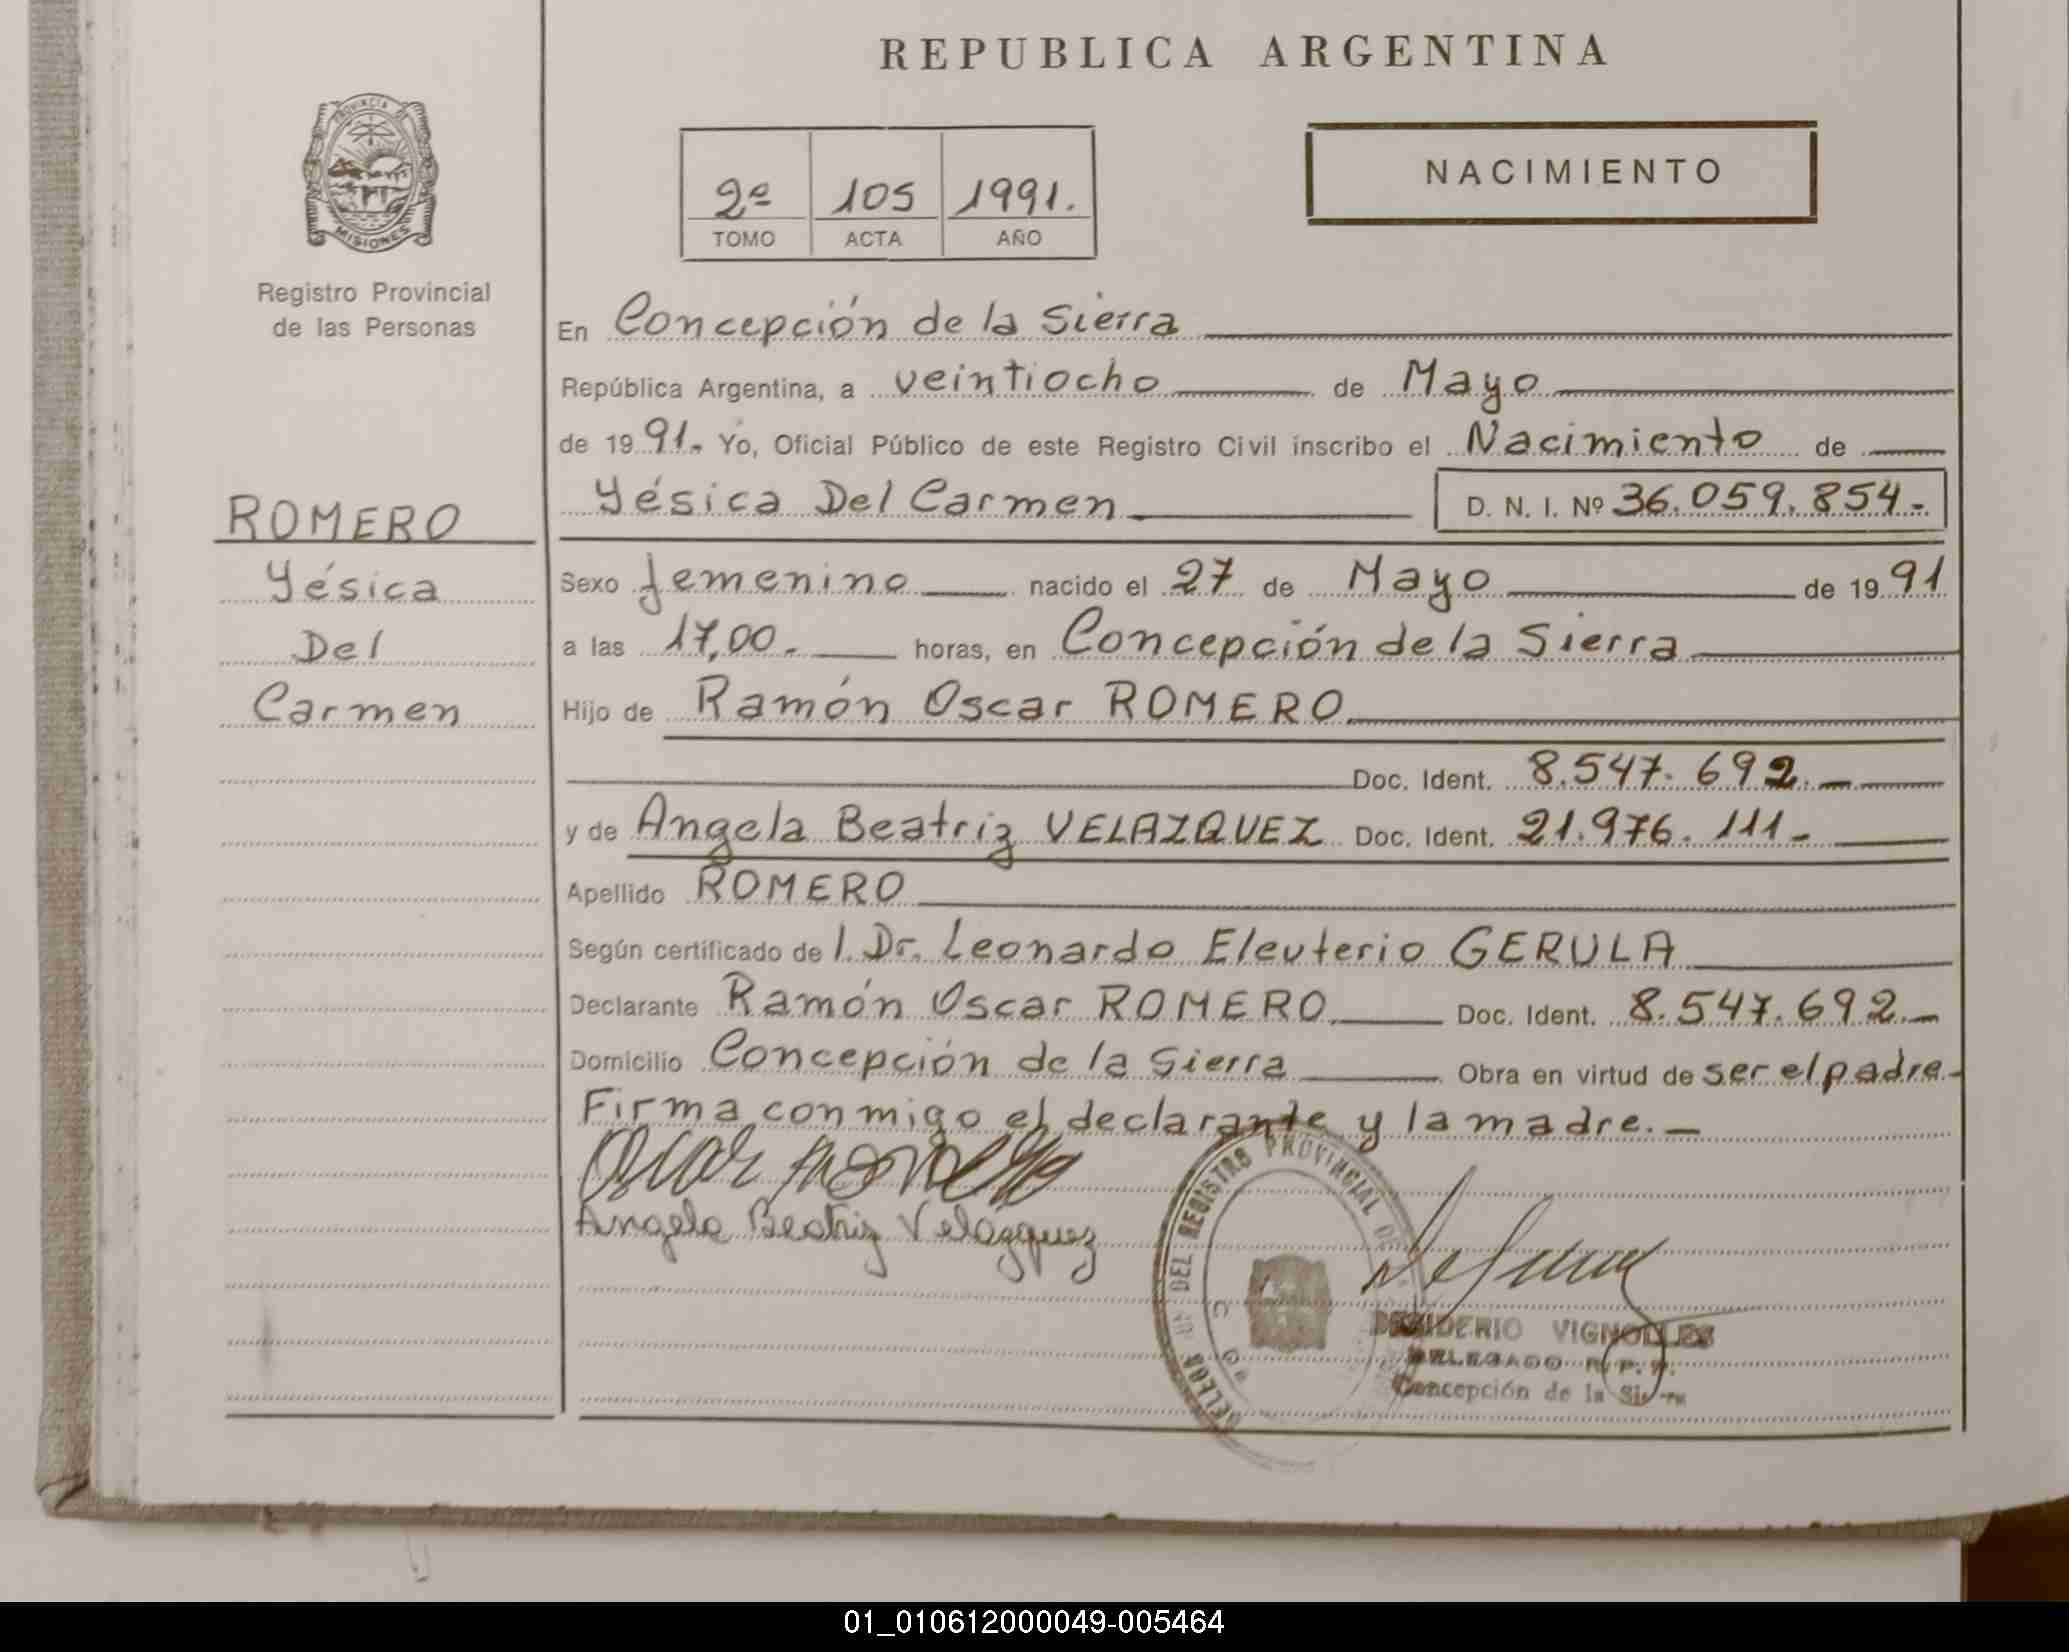 REPUBLICA ARGENTINA
PROVINCIA DE
MISIONES
Registro Provincial
de las Personas
2º 105 1991.
TOMO ACTA AÑO
NACIMIENTO
En Concepción de la Sierra
República Argentina, a veintiocho de Mayo
de 1991. Yo, Oficial Público de este Registro Civil inscribo el Nacimiento de
Yésica Del Carmen D. N. I. Nº 36.059.854.-
ROMERO
Yésica
Del
Carmen
Sexo femenino nacido el 27 de Mayo de 1991
a las 17,00.- horas, en Concepción de la Sierra
Hijo de Ramón Oscar ROMERO
Doc. Ident. 8.547.692.-
y de Angela Beatriz VELAZQUEZ Doc. Ident. 21.976.111.-
Apellido ROMERO
Según certificado de l. Dr. Leonardo Eleuterio GERULA
Declarante Ramón Oscar ROMERO Doc. Ident. 8.547.692.-
Domicilio Concepción de la Sierra Obra en virtud de ser el padre.-
Firma conmigo el declarante y la madre.-
Oscar
Angela Beatriz Velázquez
DEL REGISTRO PROVINCIAL DE
DESIDERIO VIGNOLLES
DELEGADO R. P. P.
Concepción de la Sierra
01_010612000049-005464